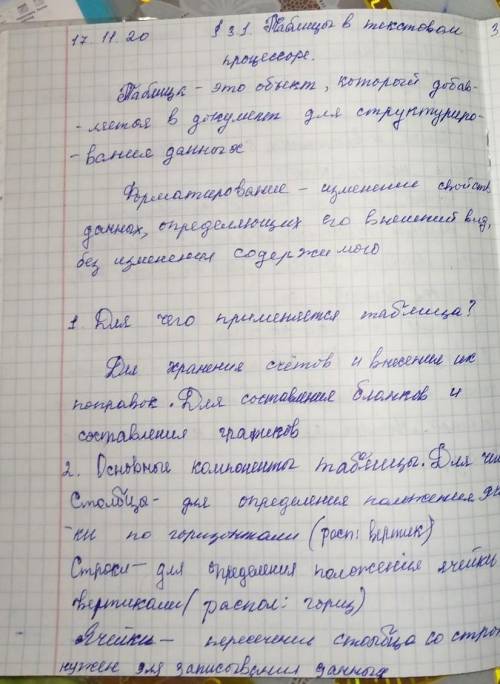 17.11.20 § 3.1. Таблицы в текстовом
процессоре.
Таблица - это объект, который добав-
- ляется в документ для структуриро-
- вания данных
Форматирование - изменение свойств
данных, определяющих его внешний вид,
без изменения содержимого
1. Для чего применяется таблица?
Для хранения счётов и внесения их
поправок. Для составления бланков и
составления графиков
2. Основные компоненты таблицы. Для че
Столбцы - для определения положения яч
- ки по горизонтали (расп: вертик)
Строки - для определения положения ячейки
вертикали (распол: гориз)
Ячейки - пересечение столбца со строк
нужен для записывания данных